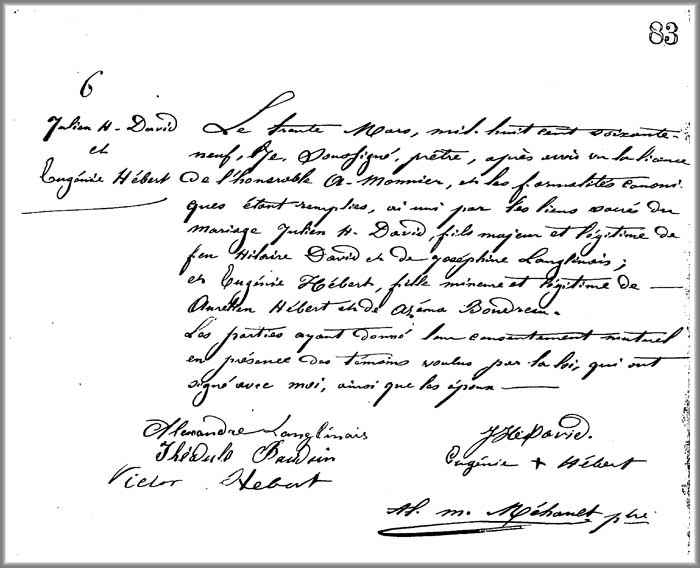 83
6
Julien H. David
et
Eugénie Hébert
Le trente Mars, mil huit cent soixante-
neuf, Je, soussigné, prêtre, après avoir vu la licence
de l'honorable A. Monnier, et les formalités canoni
ques étant remplies, ai uni par les liens sacré du
mariage Julien H. David, fils majeur et légitime de
feu Hilaire David et de Joséphine Langlinais;
et Eugénie Hébert, fille mineure et légitime de —
Aurelien Hébert et de Azéma Boudreau.
Les parties ayant donné leur consentement mutuel
en présence des témoins voulus par la loi, qui ont
signé avec moi, ainsi que les époux —
Alexandre Langlinais
Théodule Baudoin
Victor Hebert
JHDavid.
Eugénie + Hébert
M. Méhault ptre